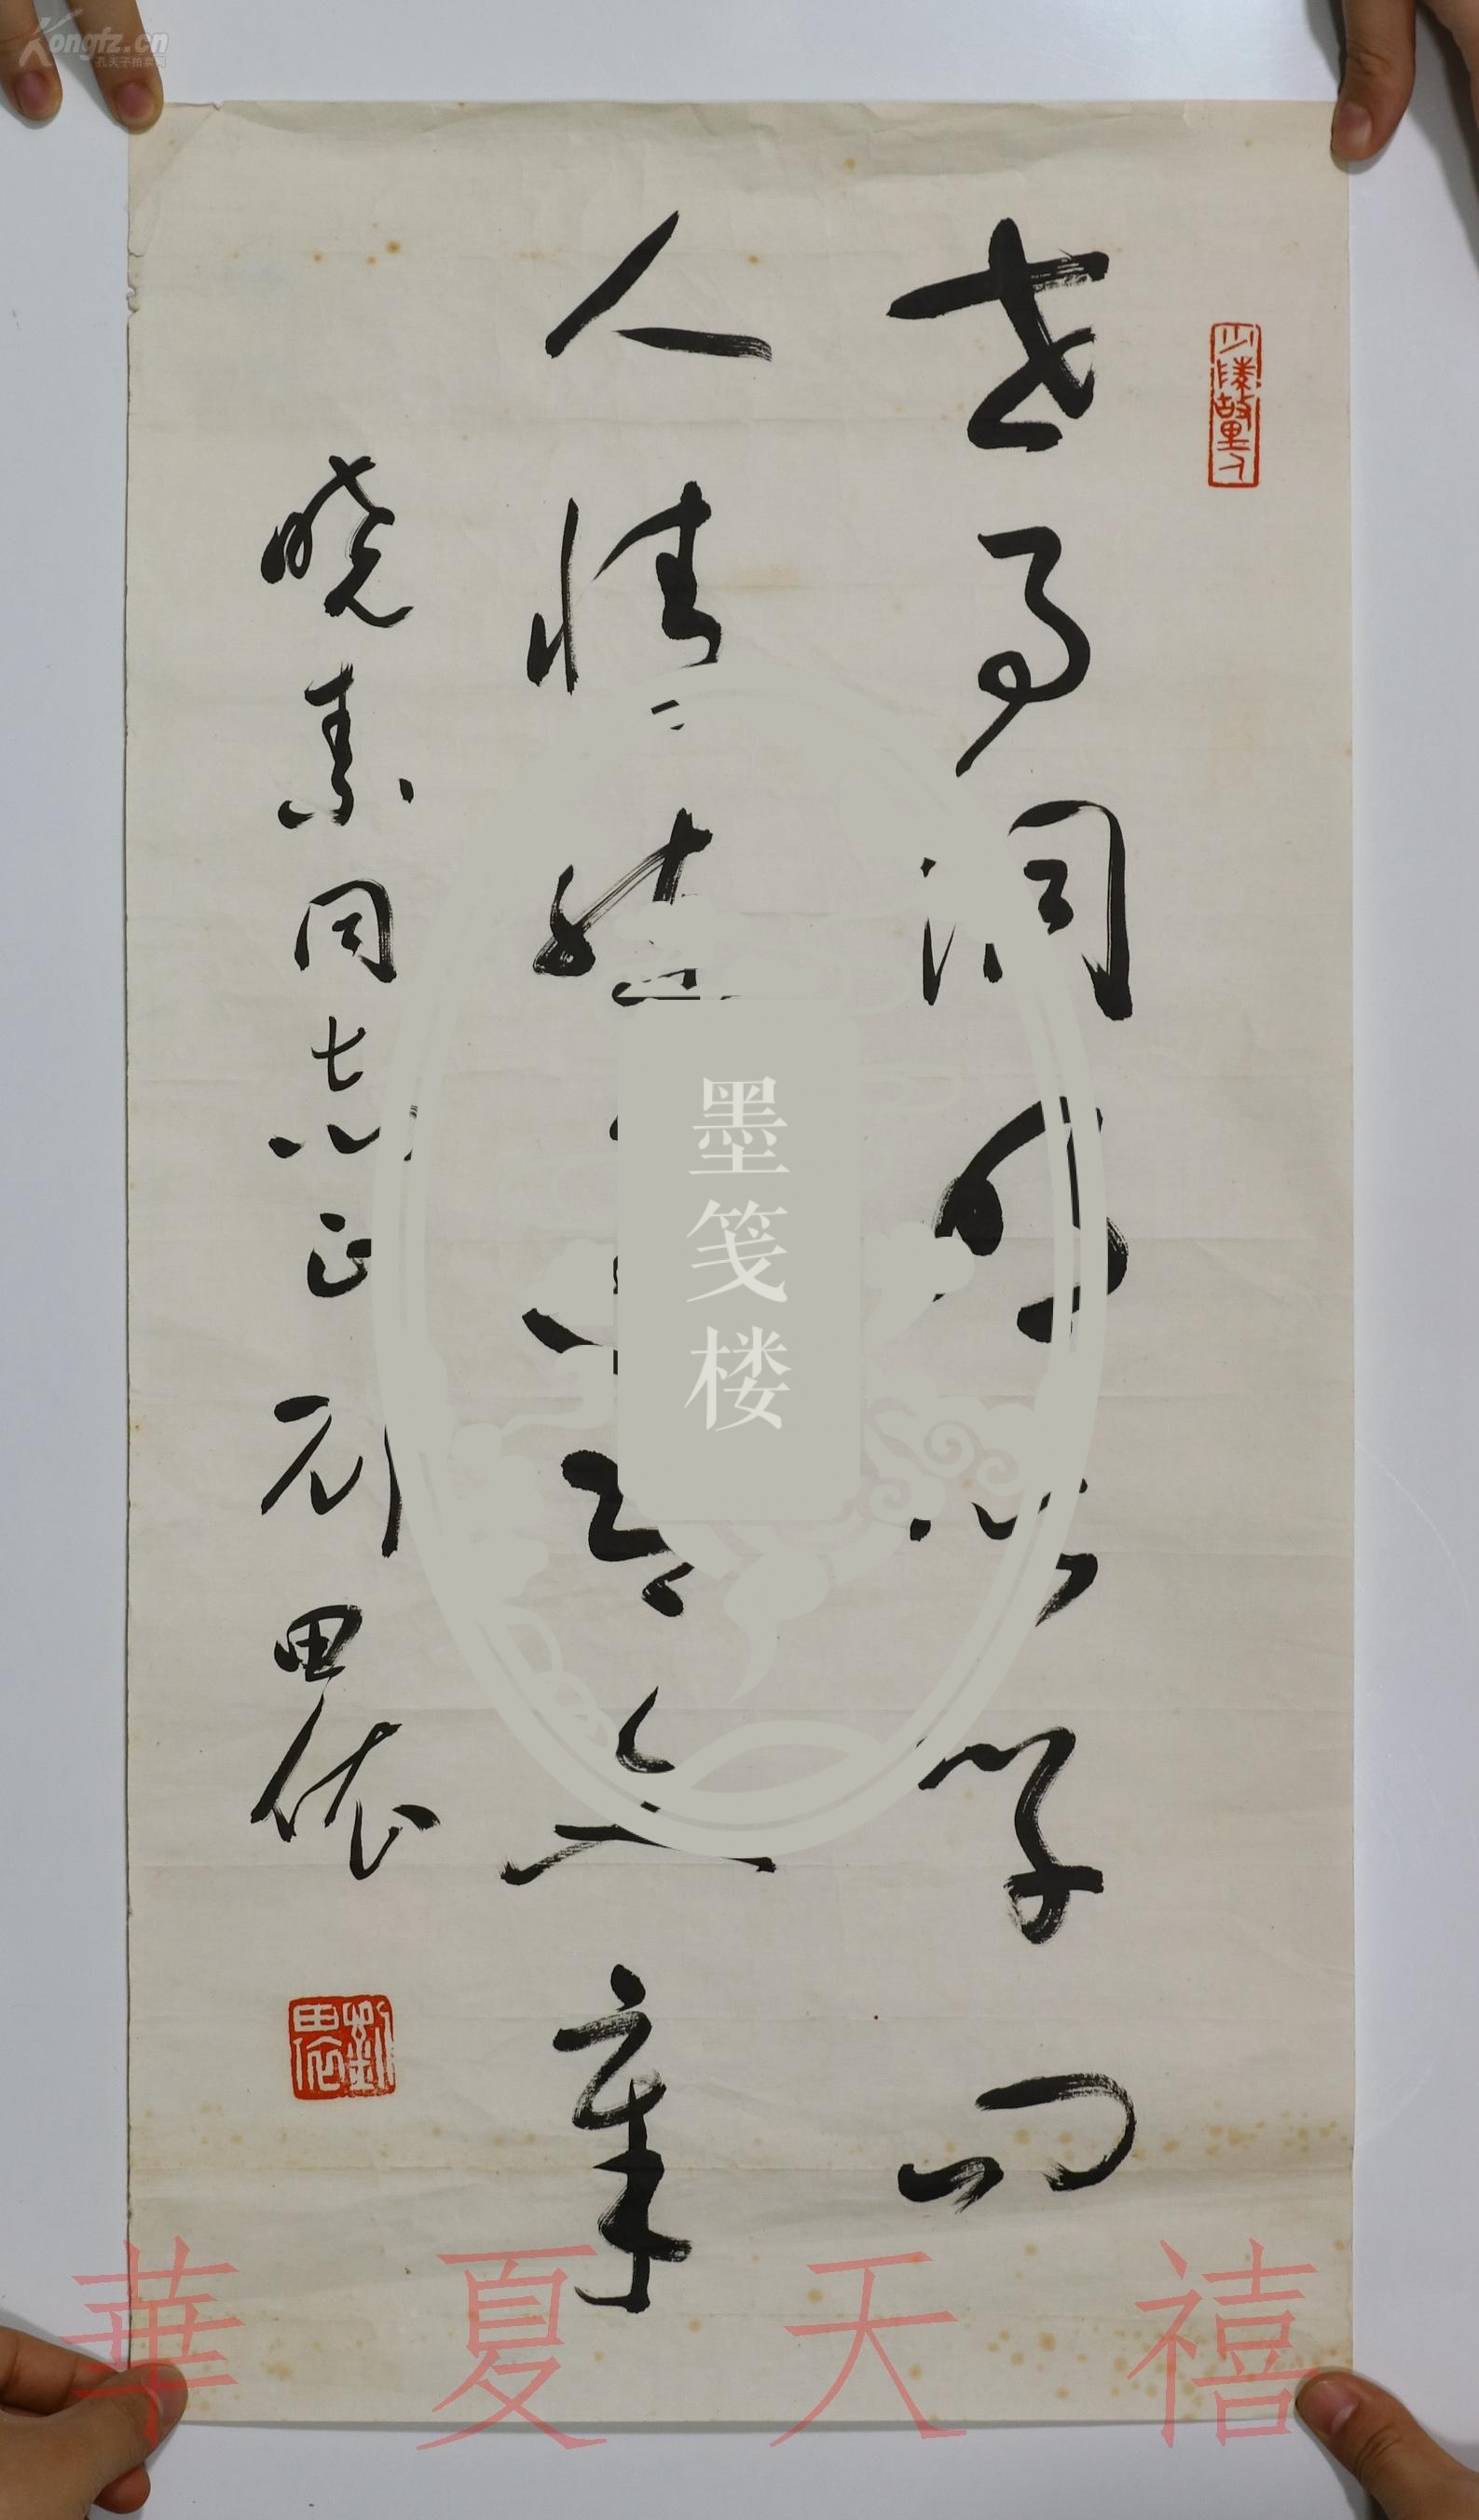 Kongfz.cn
孔夫子拍卖网
少陵故里人
世事洞明皆学问
人情练达即文章
晓素同志正 刘田依
劉田依
墨笺楼
華夏天禧